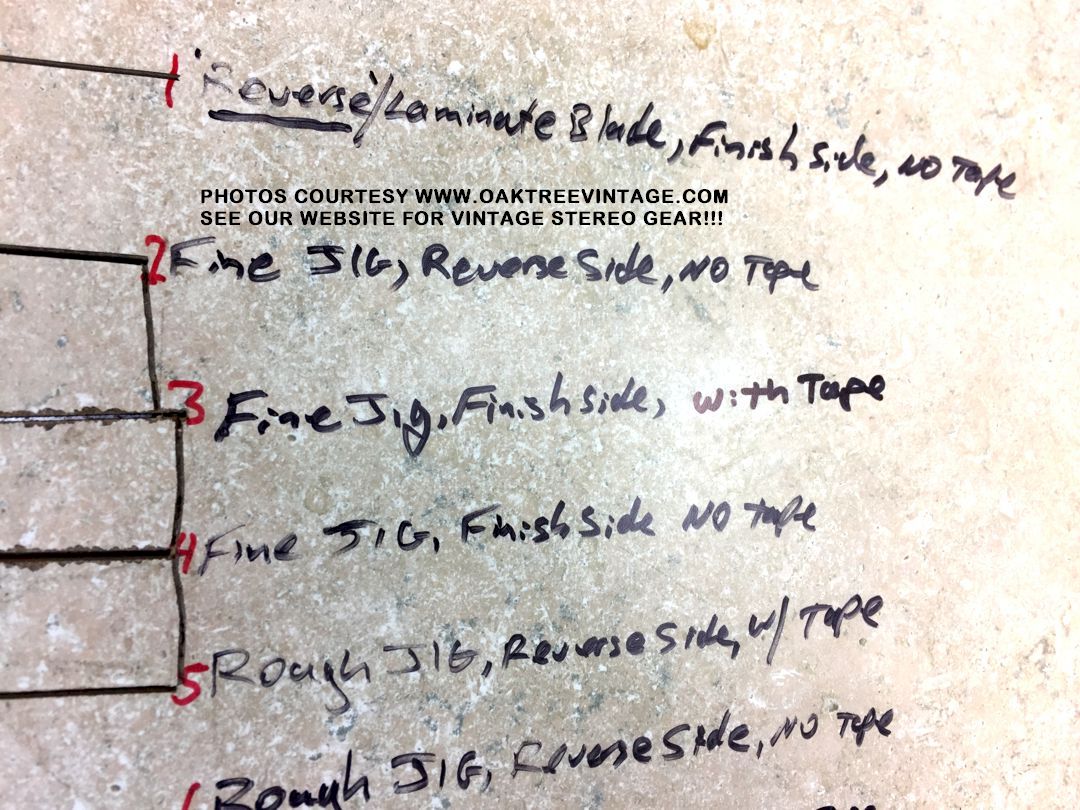 1 "Reverse"/Laminate Blade, Finish side, NO Tape
PHOTOS COURTESY WWW.OAKTREEVINTAGE.COM
SEE OUR WEBSITE FOR VINTAGE STEREO GEAR!!!
2 Fine JIG, Reverse Side, NO Tape
3 Fine Jig, Finish side, with Tape
4 Fine JIG, Finish Side NO Tape
5 Rough JIG, Reverse Side, w/ Tape
Rough JIG, Reverse Side, NO Tape